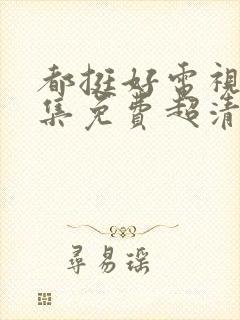 都挺好電視
集免費超清
尋易瑶